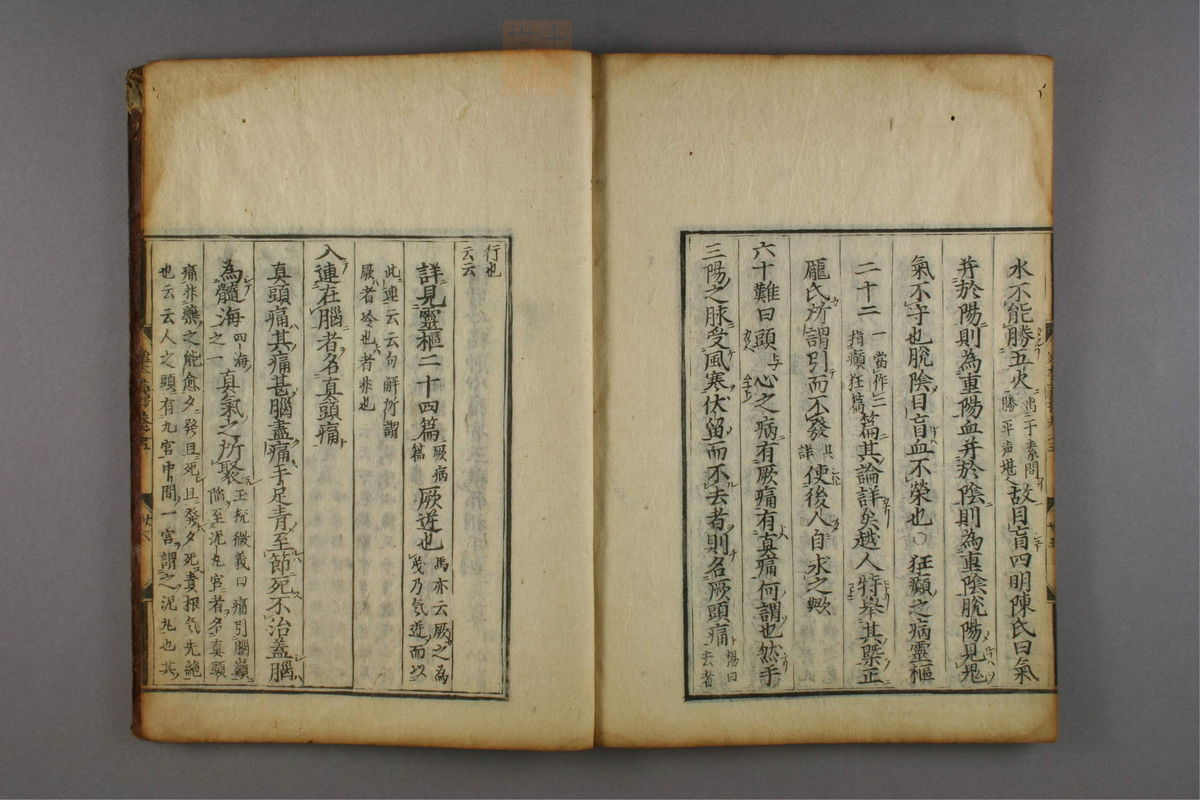 水不能勝五火出于素問勝平声堪故目盲四明陳氏曰氣
并於陽則為重陽血并於陰則為重陰脫陽見鬼
氣不守也脫陰目盲血不榮也○狂癲之病靈樞
二十二一當作三指癲狂篇篇其論詳矣越人特舉其槩正
龐氏所謂引而不發其詳使後人自求之歟
六十難曰頭与心之病有厥痛有真痛何謂也然手
三陽之脉受風寒伏留而不去者則名厥頭痛楊曰去者
行也云云
詳見靈樞二十四篇厥病篇厥逆也馬亦云厥之為義乃気逆而以
此連云云句解所謂
厥者冷也者非也
入連在腦者名真頭痛
真頭痛其痛甚腦盡痛手足青至節死不治蓋腦
為髓海四海之一真氣之所聚王杭微義曰痛引腦巔陥至泥丸宮者名真頭
痛非藥之能愈夕発旦死旦発夕死責根気先絶
也云云人之頭有九宮中間一宮謂之泥丸也其